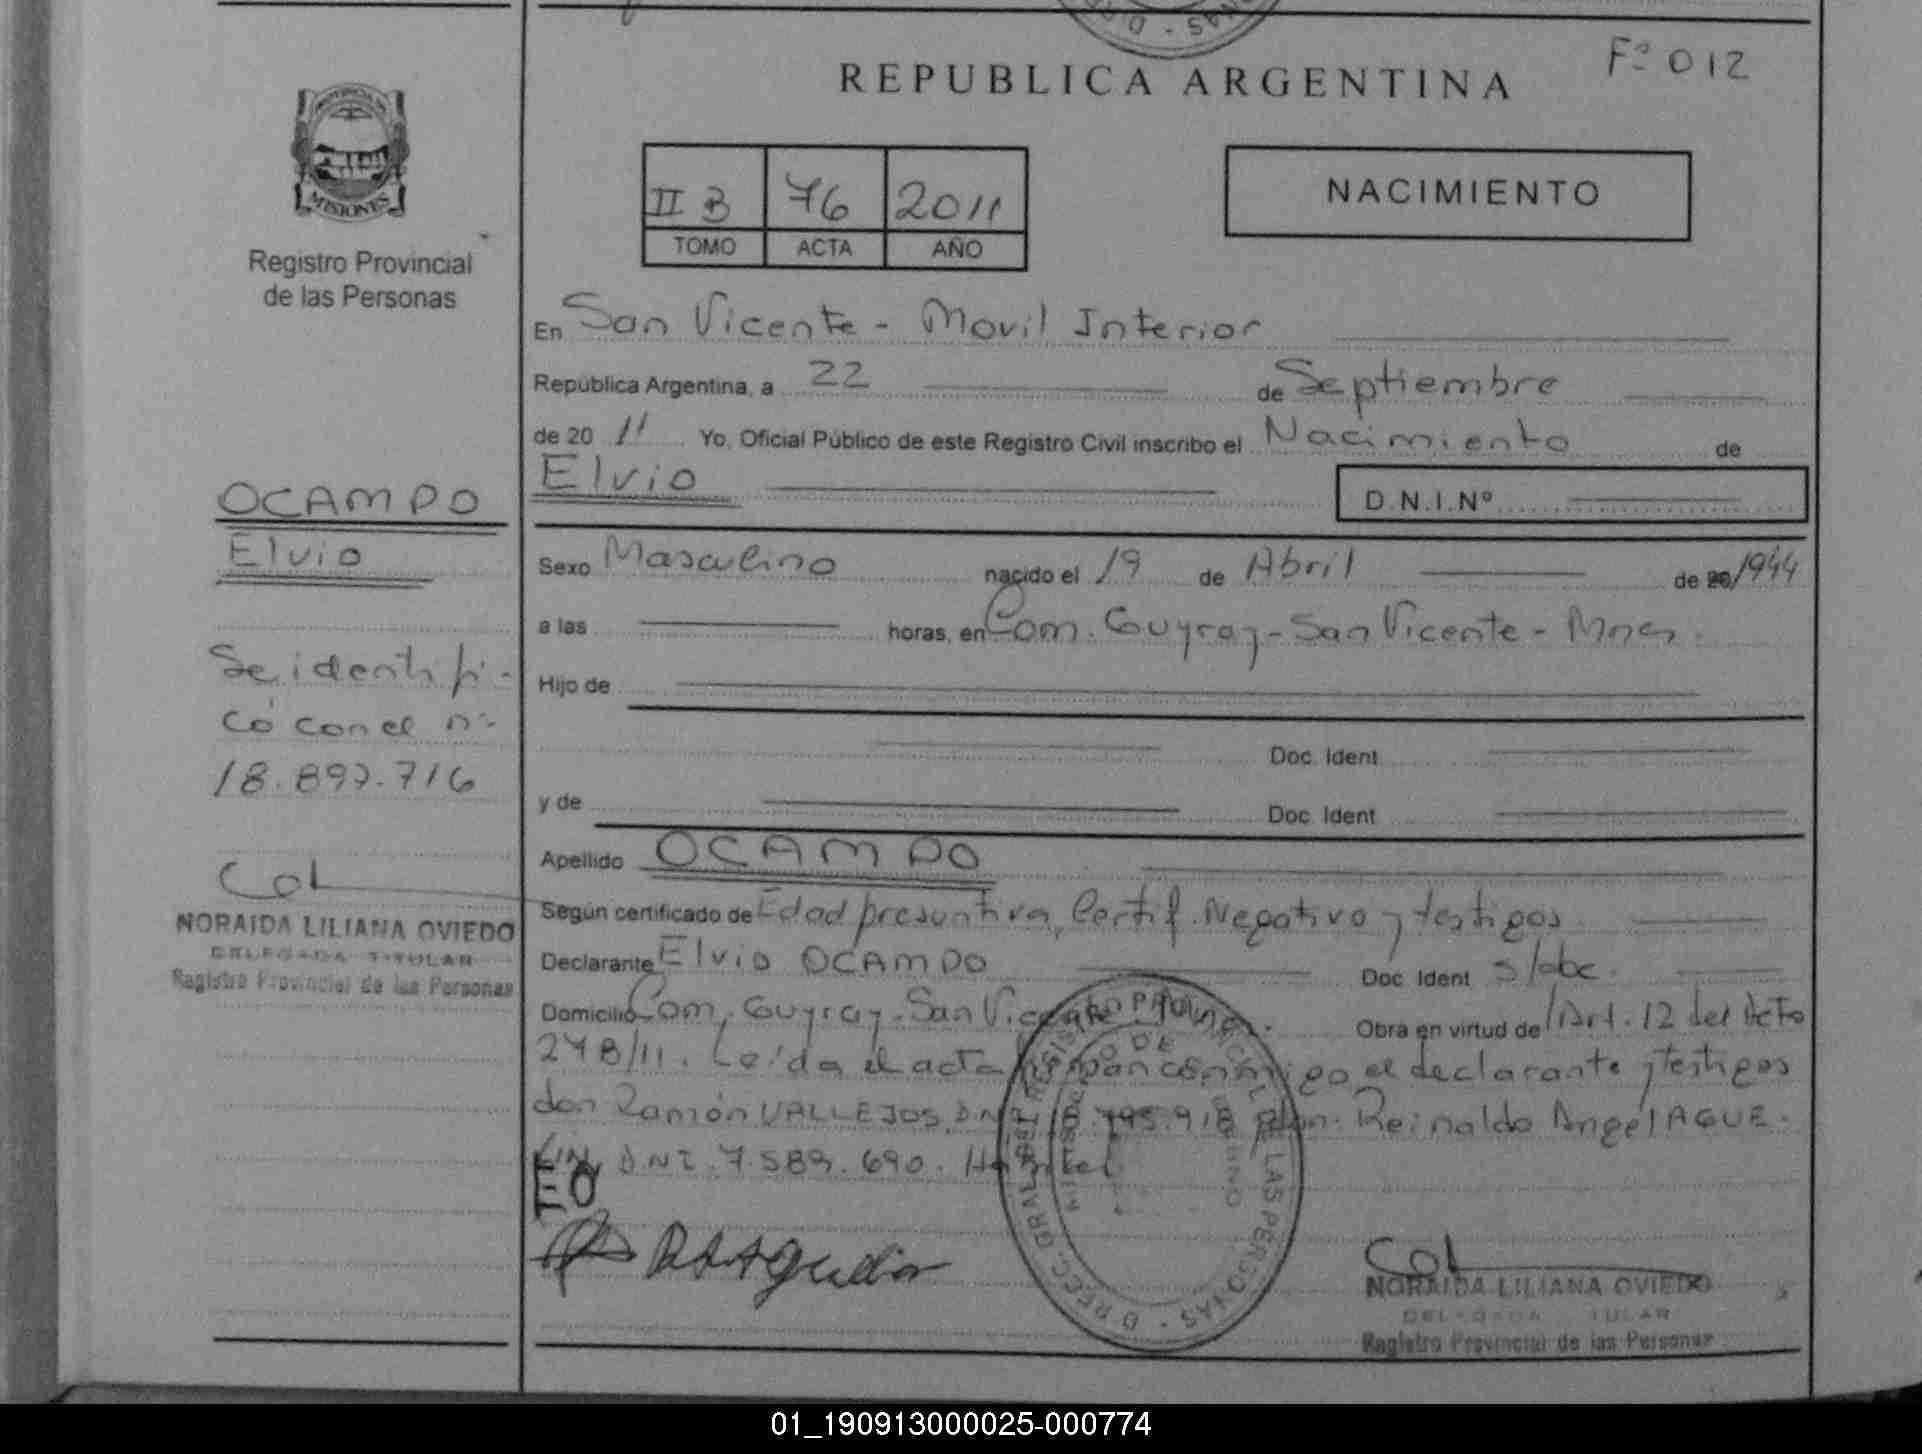 Fº 012
REPUBLICA ARGENTINA
MISIONES
Registro Provincial
de las Personas
II B 76 2011
TOMO ACTA AÑO
NACIMIENTO
En San Vicente - Movil Interior
República Argentina, a 22 de Septiembre
de 20 11 Yo, Oficial Público de este Registro Civil inscribo el Nacimiento de
Elvio
D.N.I.Nº
OCAMPO
Elvio
Se identifi-
có con el nº
18.897.716
NORAIDA LILIANA OVIEDO
DELEGADA TITULAR
Registro Provincial de las Personas
Sexo Masculino nacido el 19 de Abril de 20/1944
a las horas, en Com. Guyray - San Vicente - Mnes.
Hijo de
Doc. Ident
y de Doc. Ident
Apellido OCAMPO
Según certificado de Edad presuntiva, Certif. Negativo y testigos
Declarante Elvio OCAMPO Doc. Ident s/doc.
Domicilio Com. Guyray - San Vicente Obra en virtud de Art. 12 del Dcto
248/11. Leída el acta firman conmigo el declarante y testigos
don Ramón VALLEJOS, D.N.I. 795.918 don Reinaldo Angel AGUE.
D.N.I. 7.589.690.
EO
NORAIDA LILIANA OVIEDO
DELEGADA TITULAR
Registro Provincial de las Personas
01_190913000025-000774